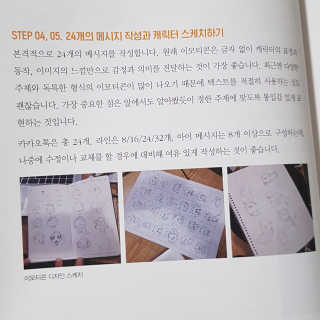 STEP 04, 05. 24개의 메시지 작성과 캐릭터 스케치하기
본격적으로 24개의 메시지를 작성합니다. 원래 이모티콘은 글자 없이 캐릭터의 표정과
동작, 이미지의 느낌만으로 감정과 의미를 전달하는 것이 가장 좋습니다. 최근엔 다양한
주제와 독특한 형식의 이모티콘이 많이 나오기 때문에 텍스트를 적절히 사용하는 것도
괜찮습니다. 가장 중요한 점은 앞에서도 알아봤듯이 정한 주제에 맞도록 통일감 있게 표
현하는 것입니다.
카카오톡은 총 24개, 라인은 8/16/24/32개, 아이 메시지는 8개 이상으로 구성하는데,
나중에 수정이나 교체를 할 경우에 대비해 여유 있게 작성하는 것이 좋습니다.
이모티콘 디자인 스케치